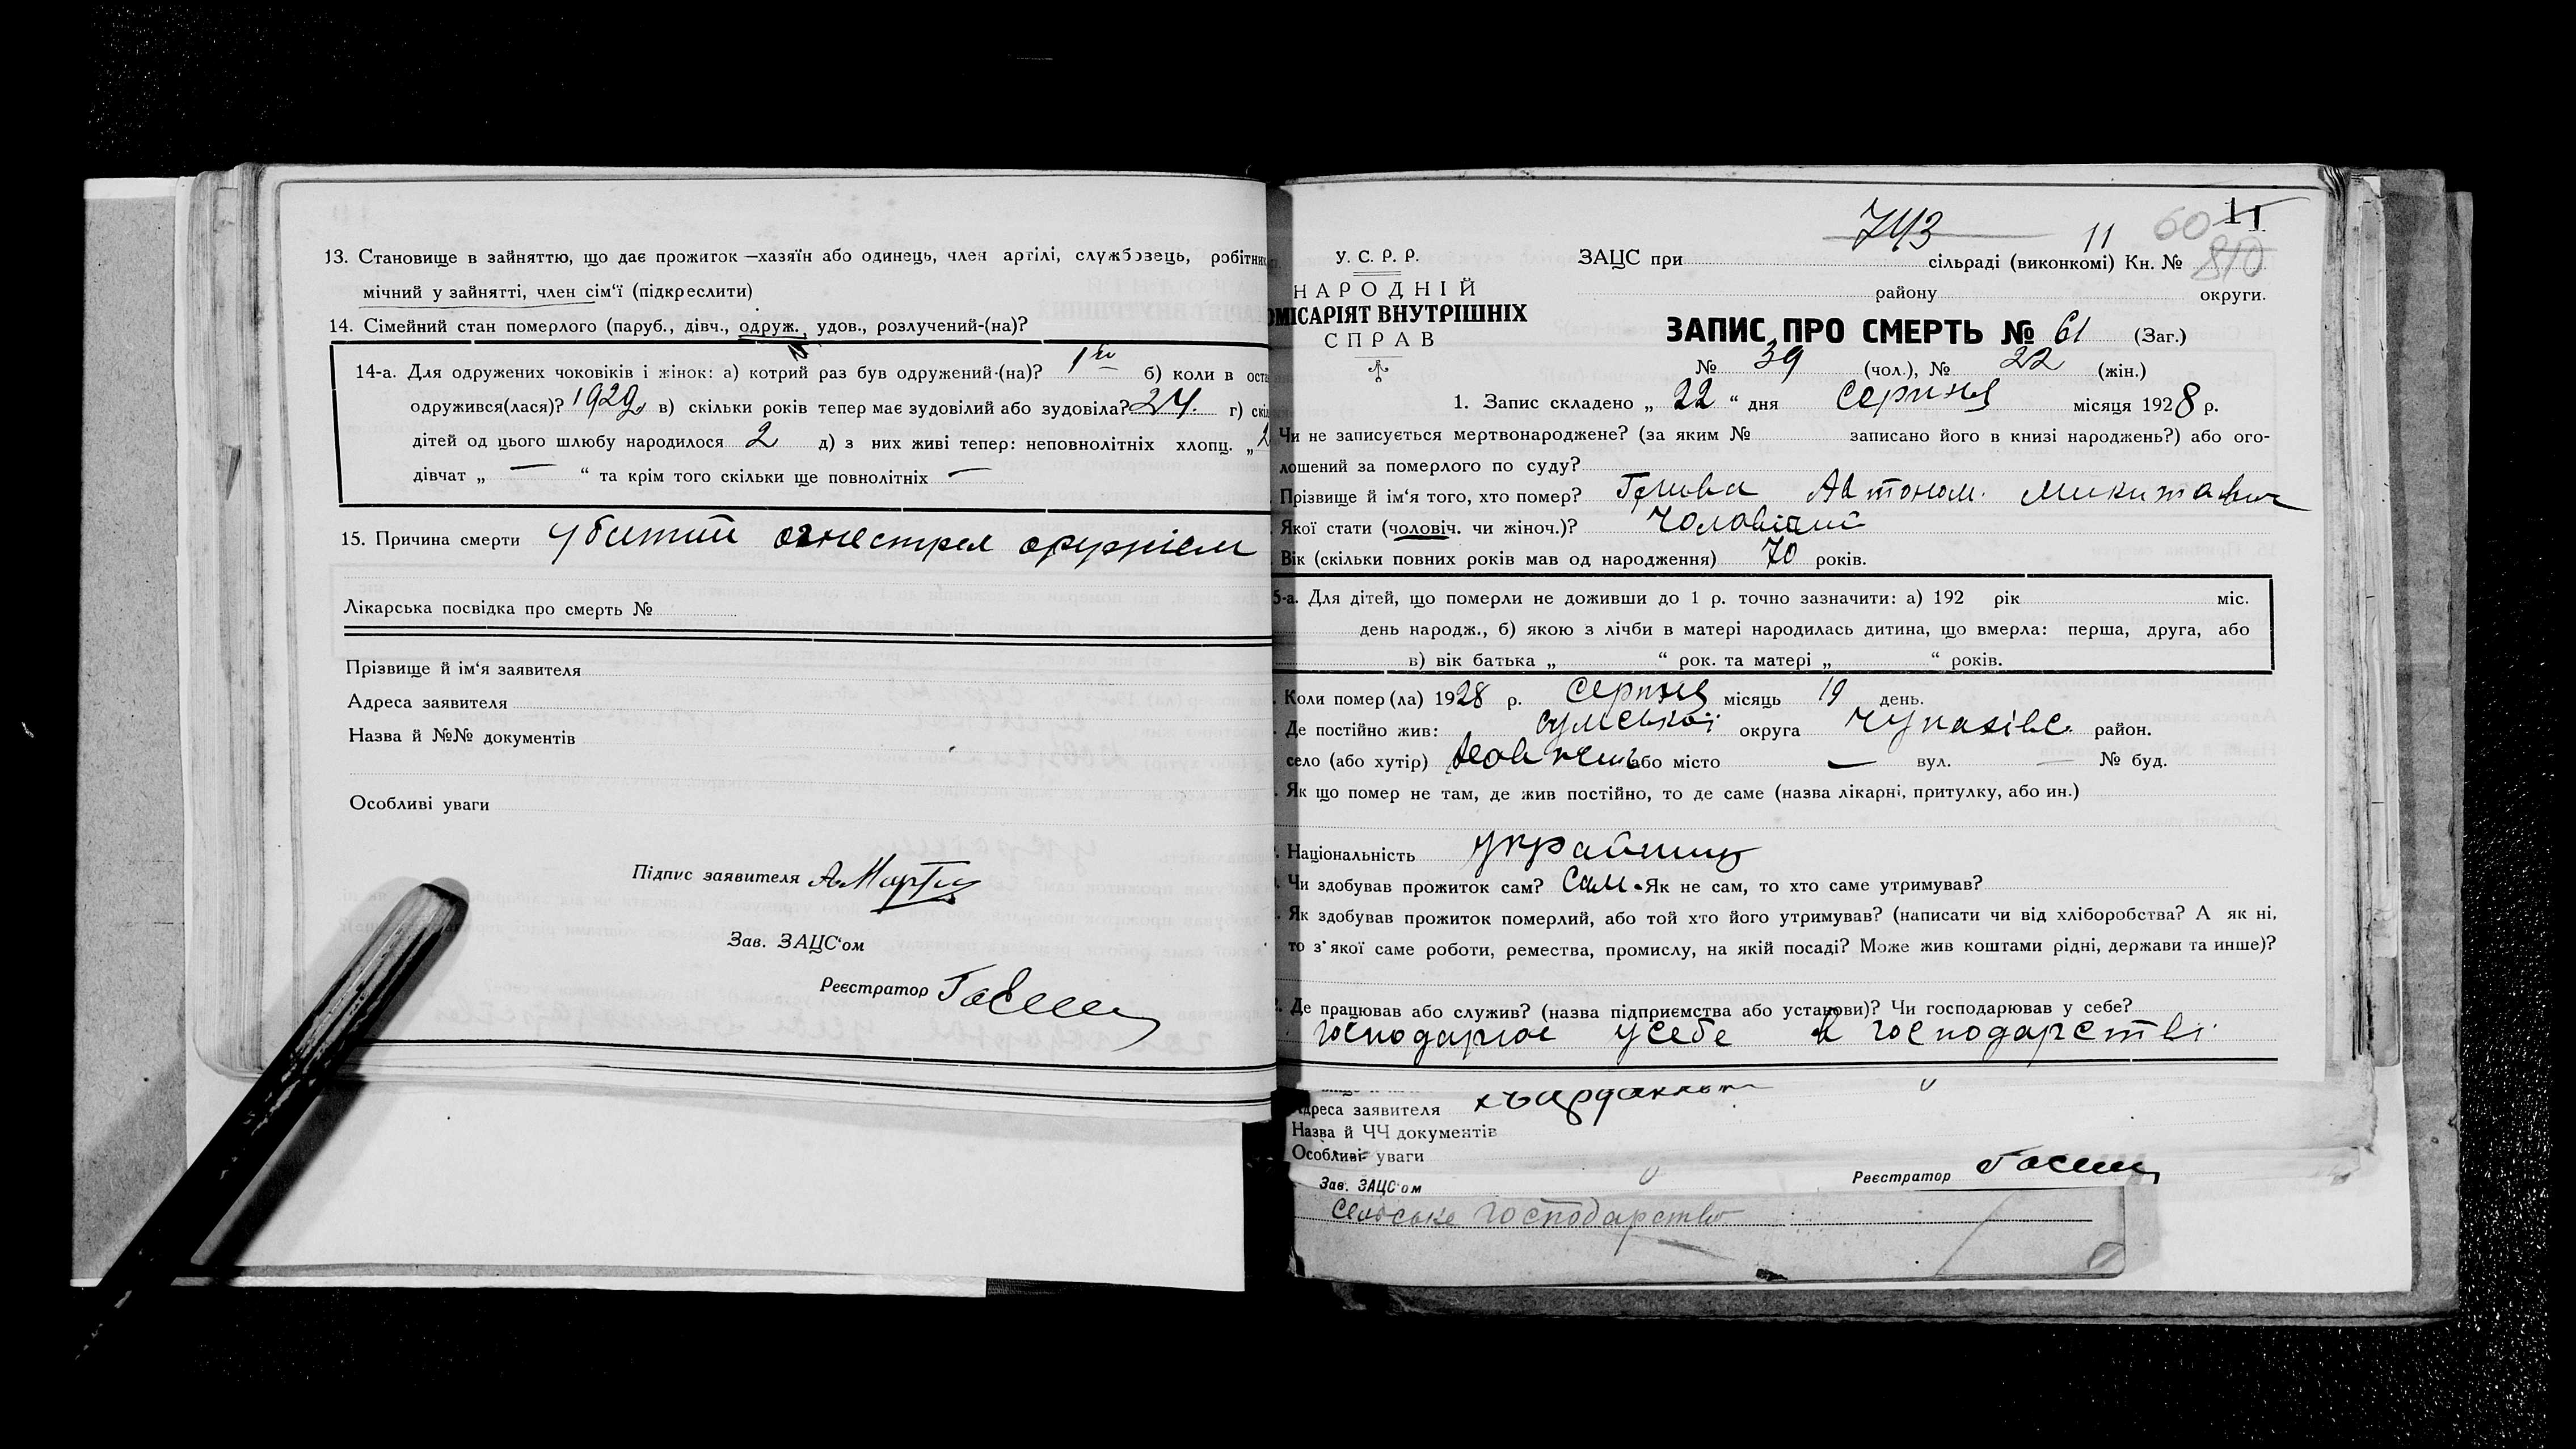 13. Становище в зайняттю, що дає прожиток —хазяїн або одинець, член артілі, службовець, робітник
мічний у зайнятті, член сім'ї (підкреслити)
14. Сімейний стан померлого (паруб., дівч., одруж., удов., розлучений-(на)?
14-а. Для одружених чоковіків і жінок: а) котрий раз був одружений-(на)? 1й б) коли в оста
одружився(лася)? 1922 в) скільки років тепер має зудовілий або зудовіла? 24. г) скі
дітей од цього шлюбу народилося 2 д) з них живі тепер: неповнолітніх хлопц. „ 2
дівчат „ — “ та крім того скільки ще повнолітніх —
15. Причина смерти убитий огнестрел оружієм
Лікарська посвідка про смерть №
Прізвище й ім'я заявителя
Адреса заявителя
Назва й №№ документів
Особливі уваги
Підпис заявителя
Зав. ЗАЦС'ом
Реєстратор
743 11 60 11
810
У. С. Р. Р.
НАРОДНІЙ
ОМІСАРІЯТ ВНУТРІШНІХ
СПРАВ
ЗАЦС при сільраді (виконкомі) Кн. №
району округи.
ЗАПИС ПРО СМЕРТЬ № 61 (Заг.)
№ 39 (чол.), № 22 (жін.)
1. Запис складено „ 22 “ дня Серпня місяця 1928 р.
Чи не записується мертвонароджене? (за яким № записано його в книзі народжень?) або ого-
лошений за померлого по суду?
Прізвище й ім'я того, хто помер? Грива Автоном. Микитович
Якої стати (чоловіч. чи жіноч.)? чоловічий
Вік (скільки повних років мав од народження) 70 років.
5-а. Для дітей, що померли не доживши до 1 р. точно зазначити: а) 192 рік міс.
день народж., б) якою з лічби в матері народилась дитина, що вмерла: перша, друга, або
в) вік батька „ “ рок. та матері „ “ років.
Коли помер(ла) 1928 р. Серпня місяць 19 день.
Де постійно жив: Сумської округа Чупахівс. район.
село (або хутір) або місто — вул. — № буд.
Як що помер не там, де жив постійно, то де саме (назва лікарні, притулку, або ин.)
Національність українец
Чи здобував прожиток сам? Сам. Як не сам, то хто саме утримував?
Як здобував прожиток померлий, або той хто його утримував? (написати чи від хліборобства? А як ні,
то з'якої саме роботи, ремества, промислу, на якій посаді? Може жив коштами рідні, держави та инше)?
Де працював або служив? (назва підприємства або установи)? Чи господарював у себе?
господарює усебе в господарстві
Адреса заявителя
Назва й ЧЧ документів
Особливі уваги
Зав. ЗАЦС'ом Реєстратор
сельське господарство